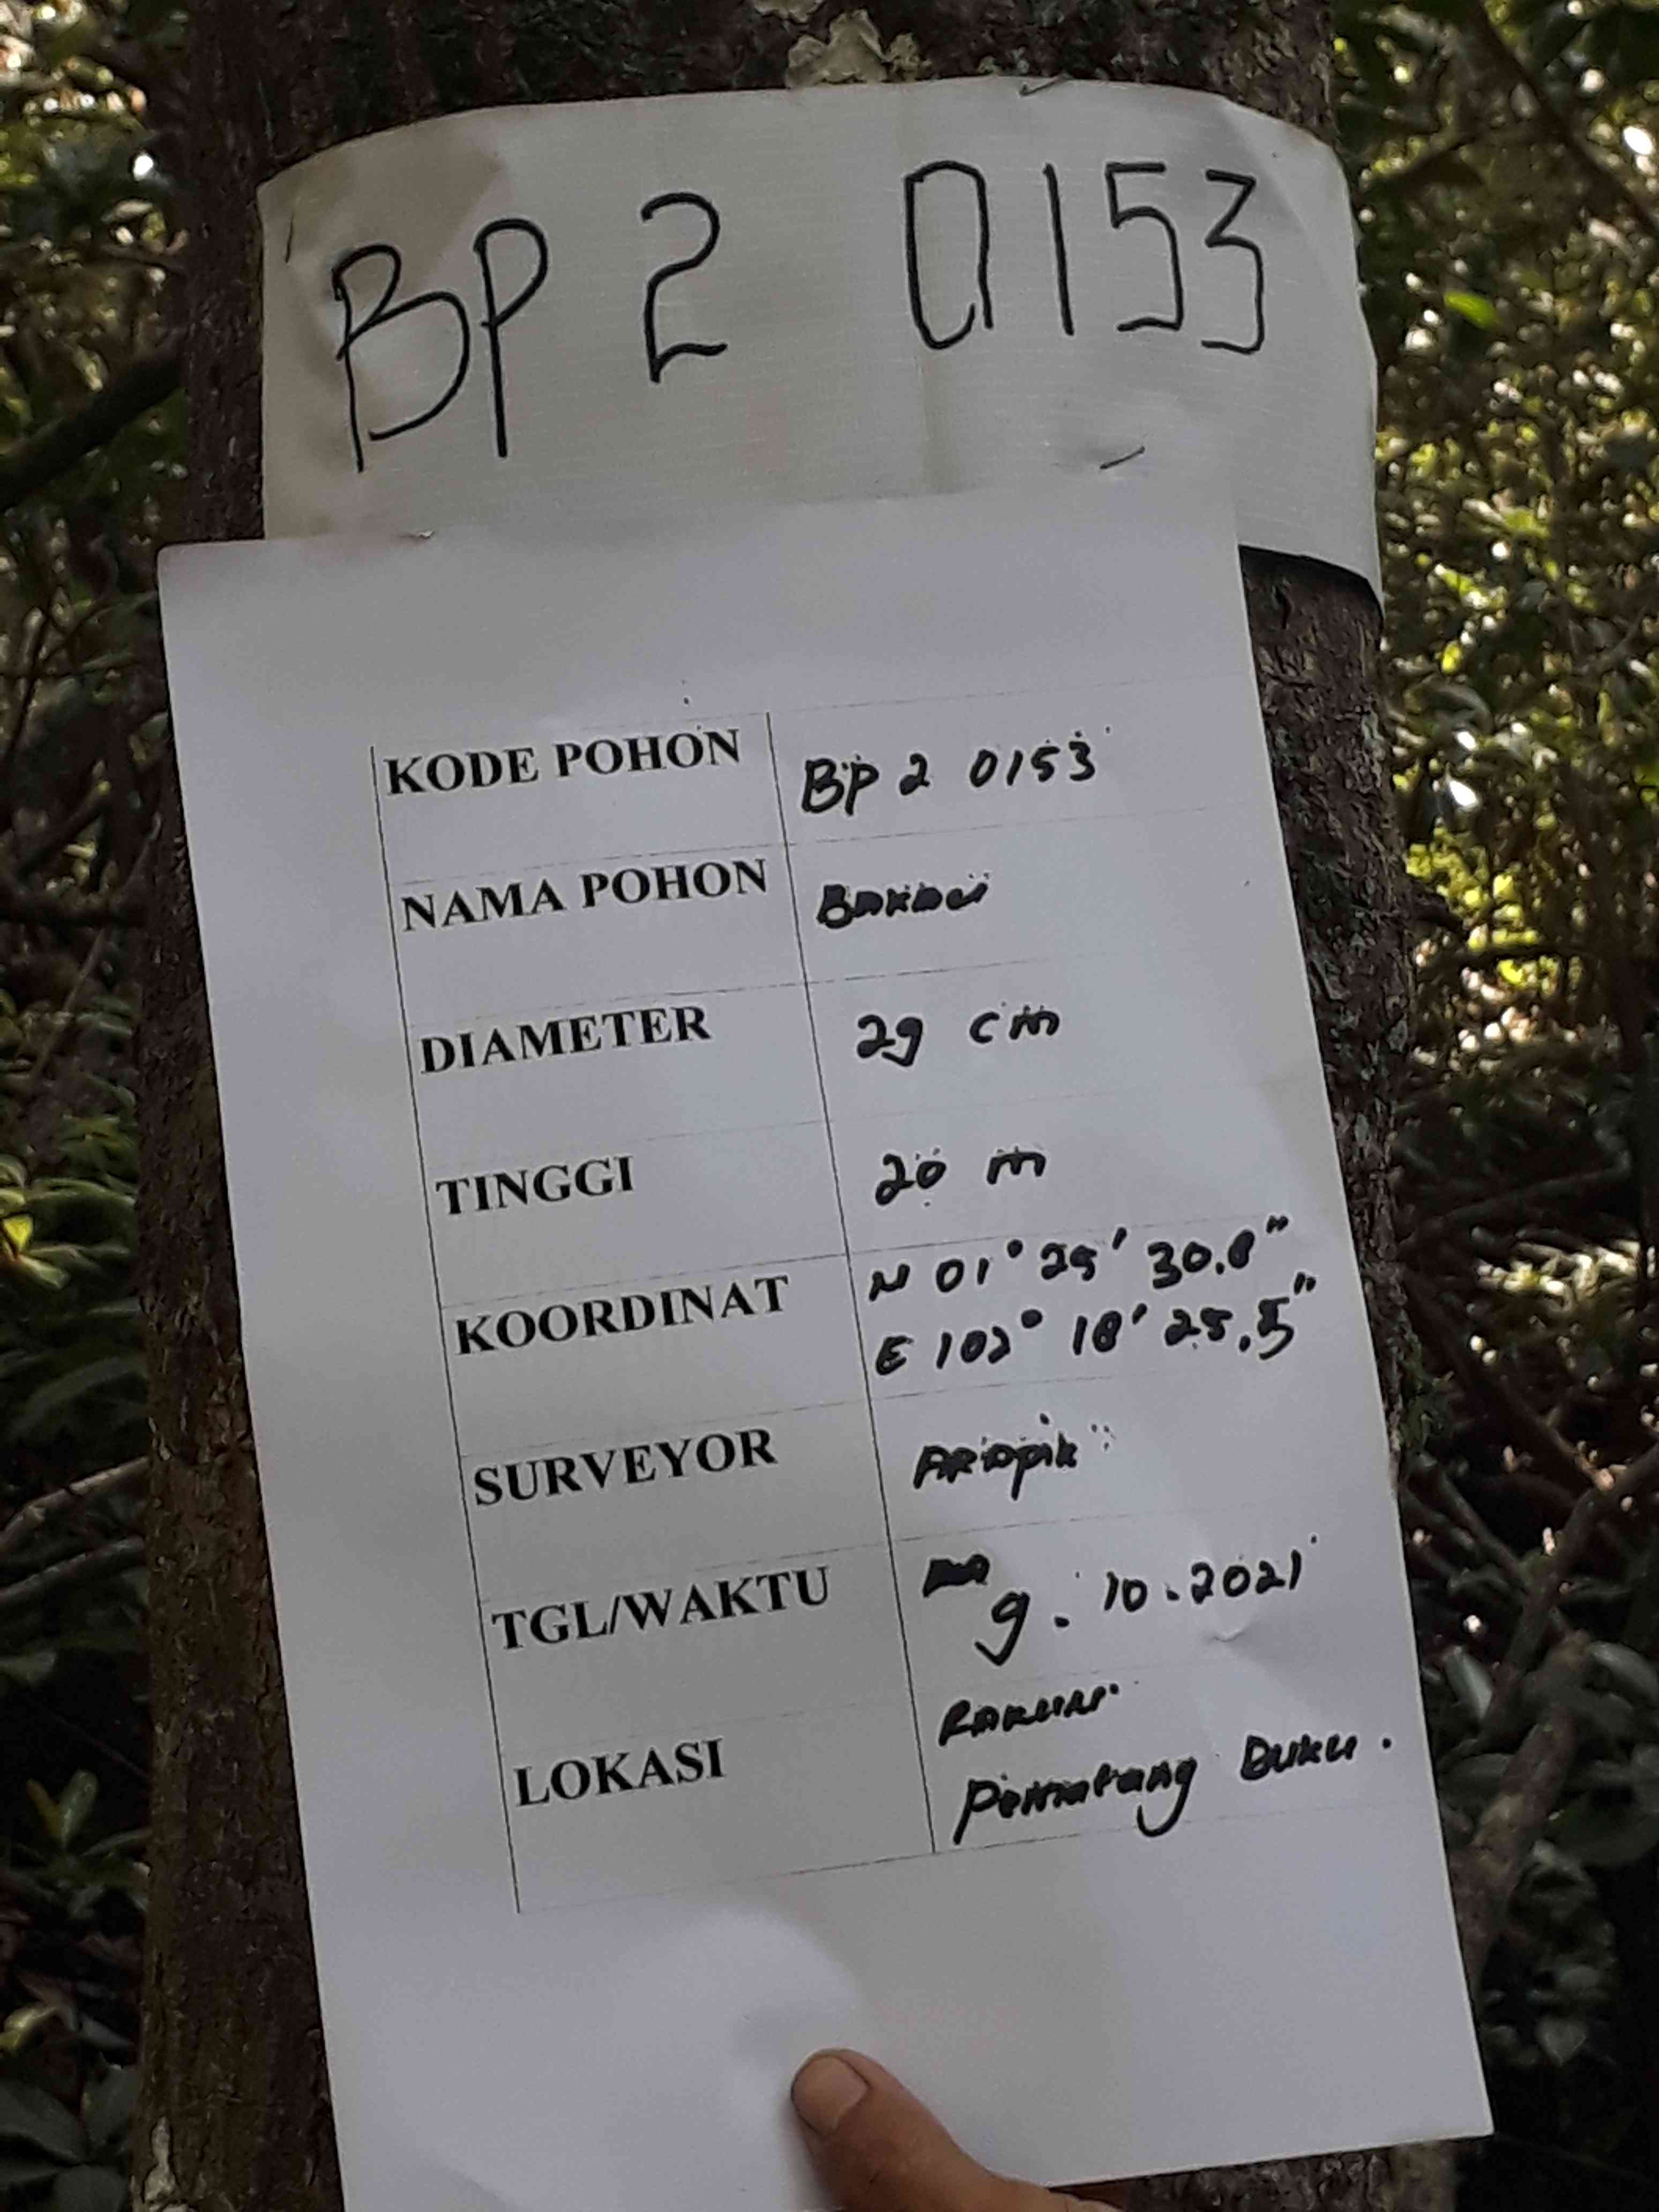 BP 2 0153
KODE POHON BP 2 0153
NAMA POHON BAKAU
DIAMETER 29 cm
TINGGI 20 m
KOORDINAT N 01° 25' 30.8"
E 102° 18' 25.5"
SURVEYOR
TGL/WAKTU 9. 10. 2021
LOKASI
Pematang Duku.